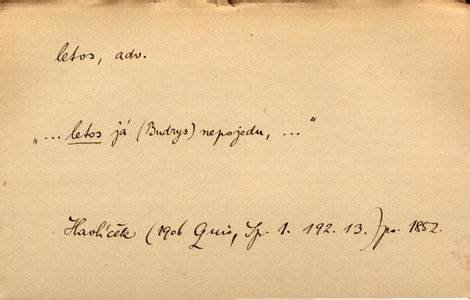 letos, adv.
„... letos já (Budrys) nepojedu, ...“
Havlíček (1906 Quis, Sp. 1. 192. 13.) po. 1852.